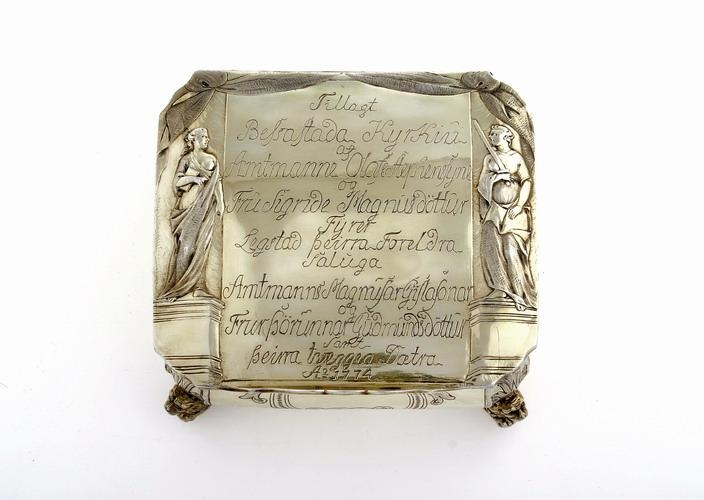 Tillagt
Bessastada Kyrkiu
af
Amtmanne Olafe Stephenssyne
og
Frü Sigride Magnüsdöttür
Fÿrer
Legstad þeirra Foreldra
Saluga
Amtmanns Magnüsar Gislasonar
og
Frür Þörünnar Güdmundsdöttür
samt
þeirra tveggia Dætra
Aº 1774